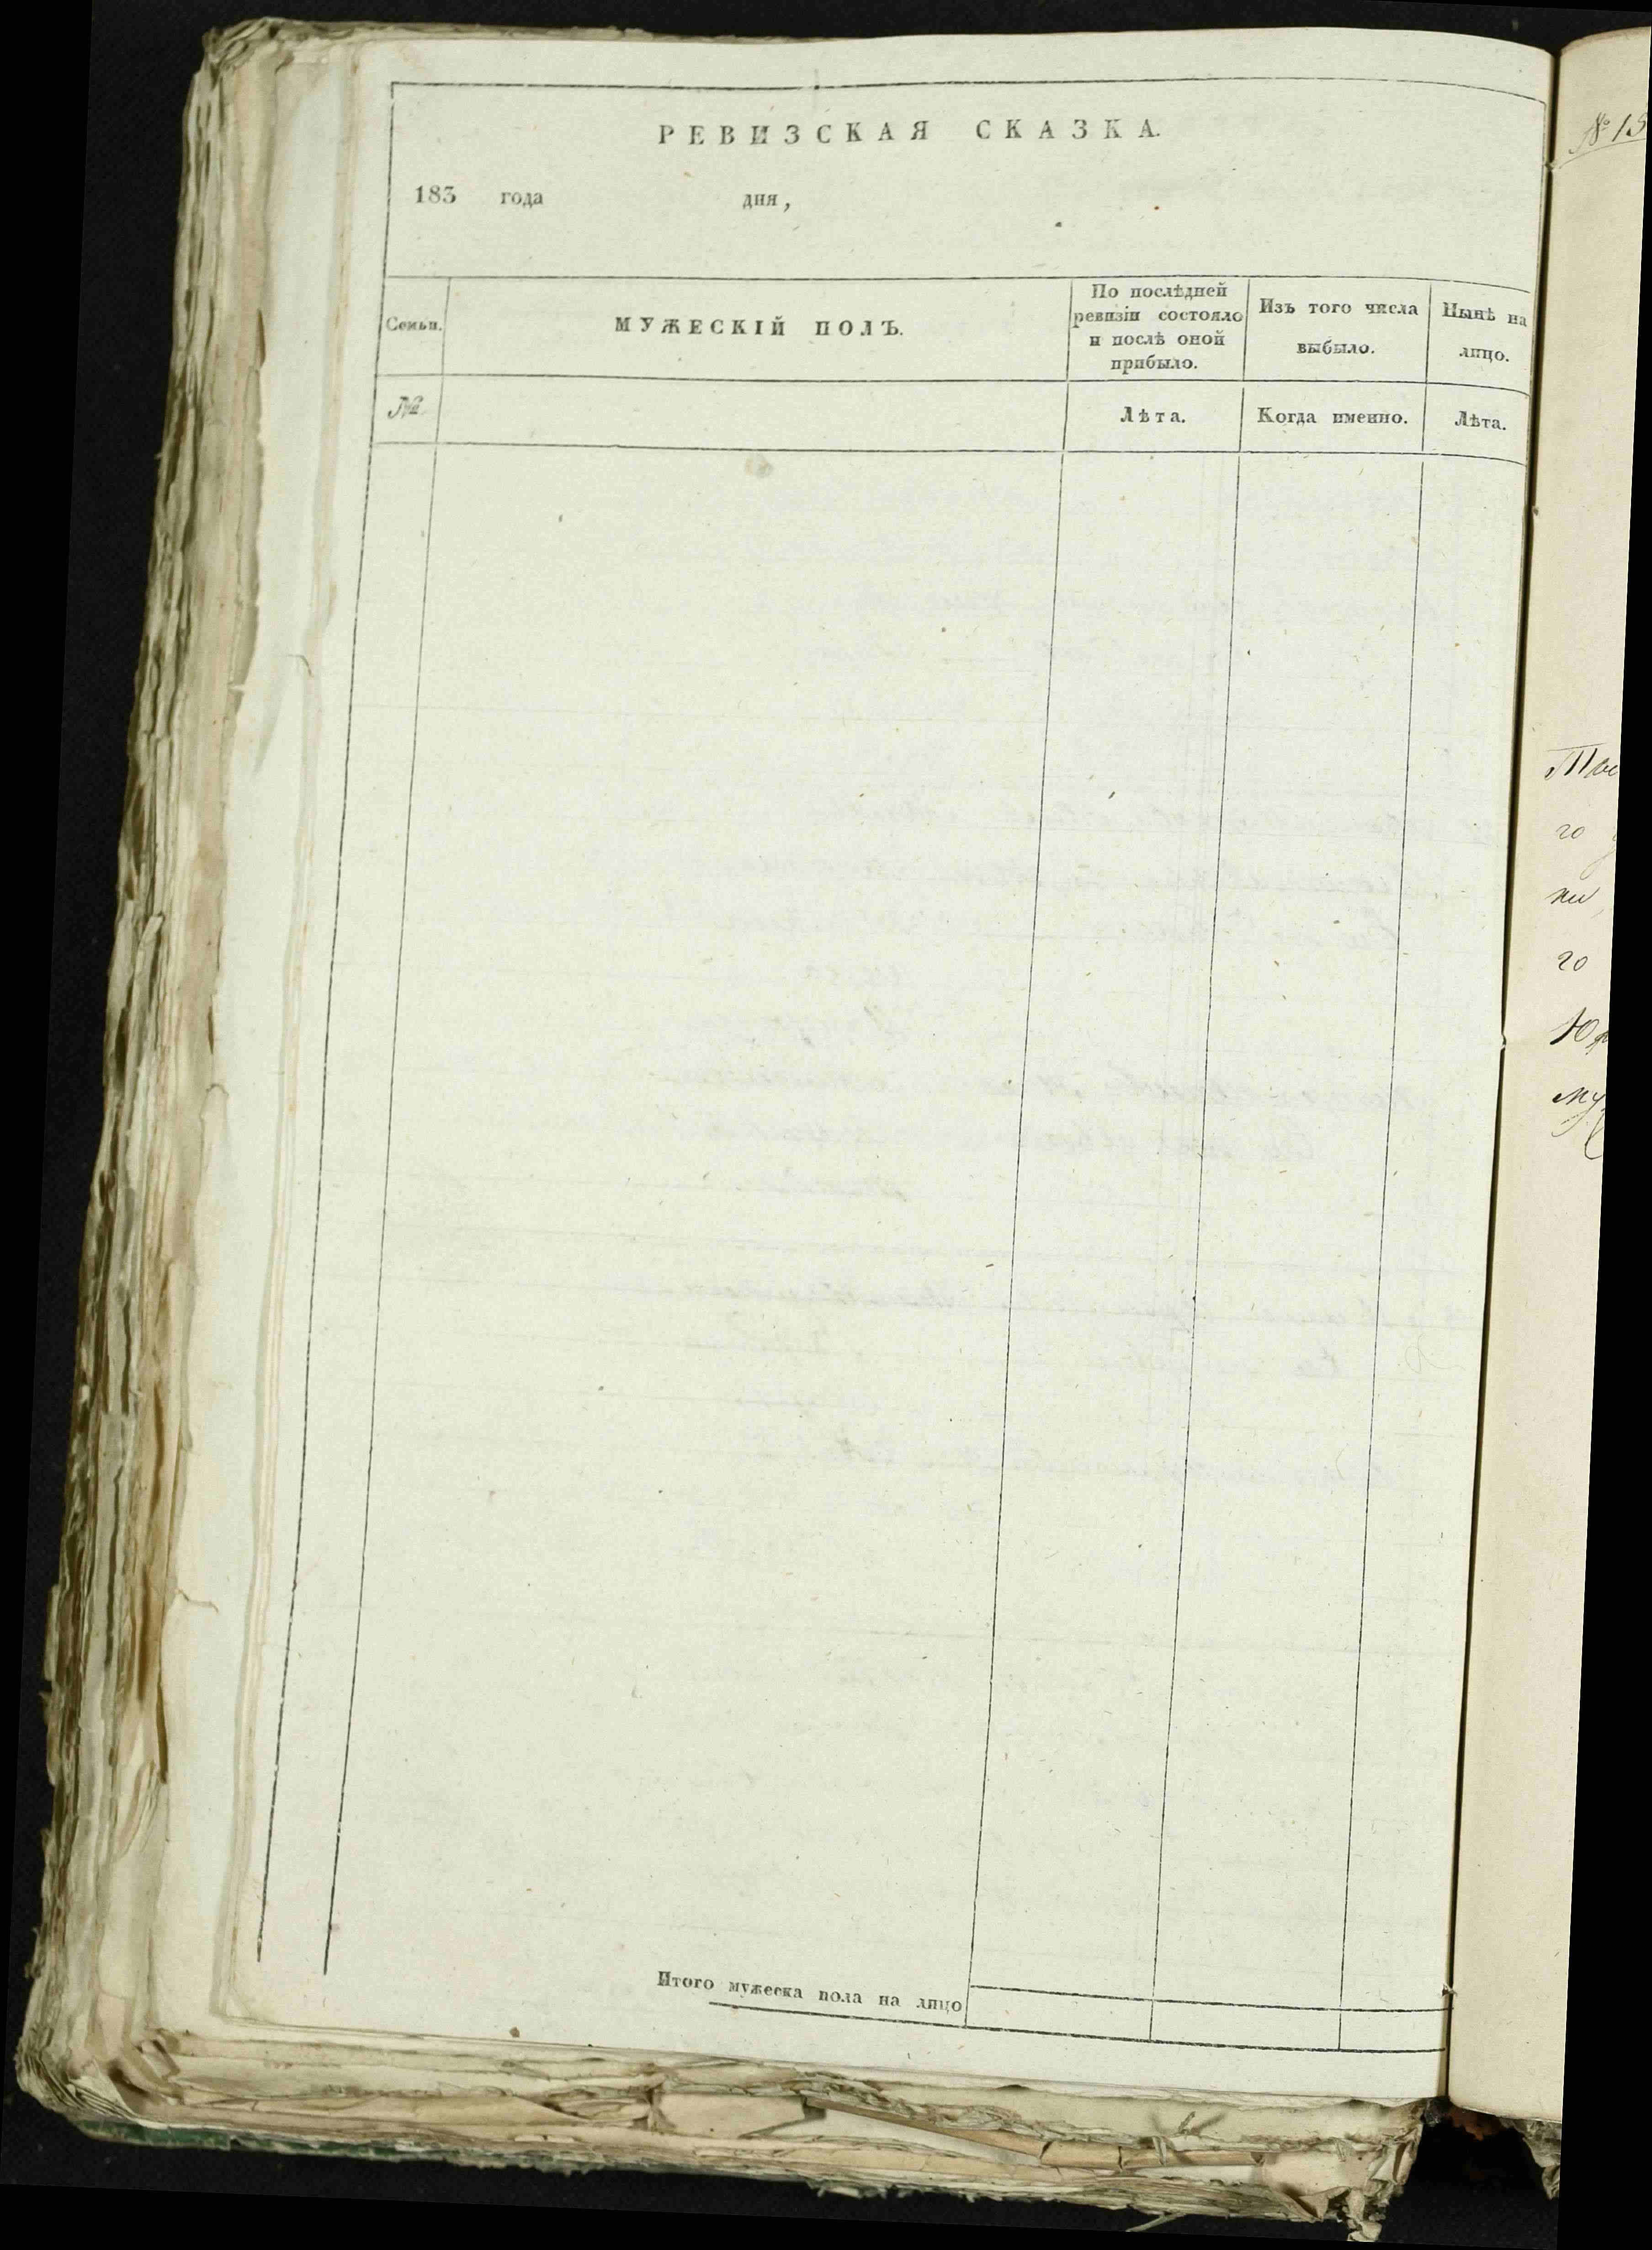 РЕВИЗСКАЯ СКАЗКА.
183 года дня,
Семьи.
МУЖЕСКІЙ ПОЛЪ.
По послѣдней
ревизіи состояло
и послѣ оной
прибыло.
Изъ того числа
выбыло.
Нынѣ на
лицо.
№
Лѣта.
Когда именно.
Лѣта.
Итого мужеска пола на лицо
№ 13
го
ки
го